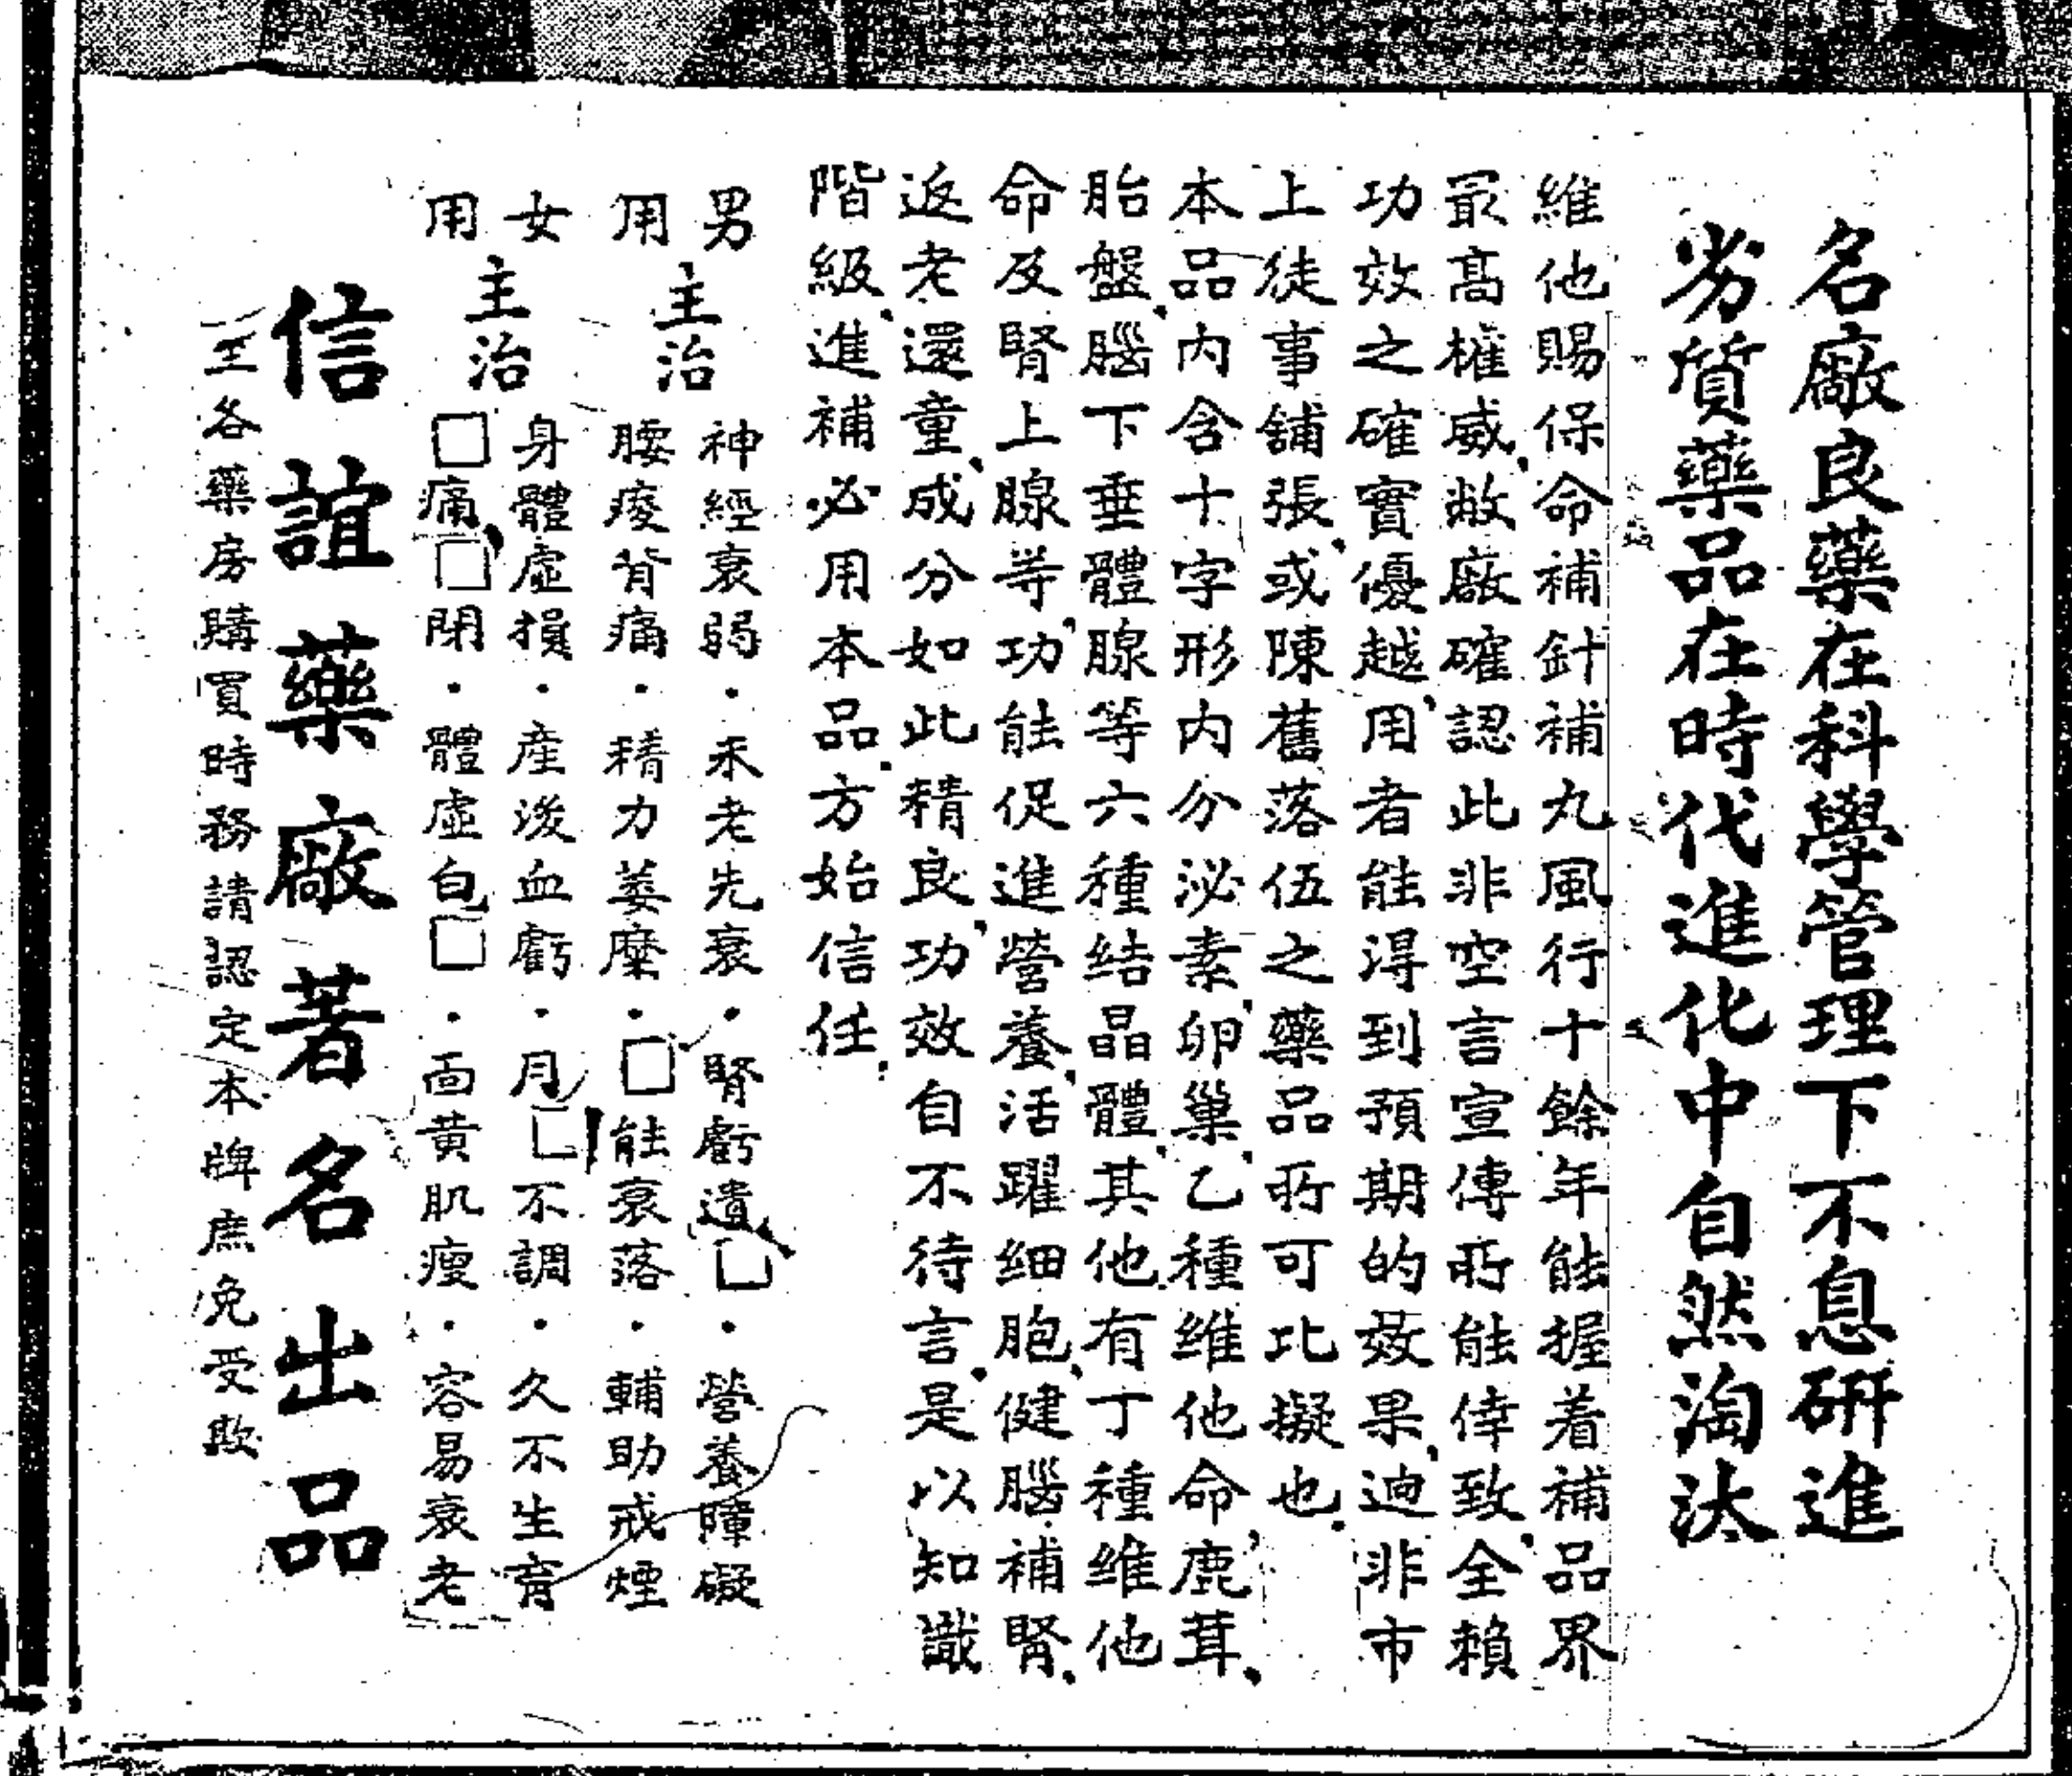 名廠良藥在科學管理下不息研進
劣質藥品在時代進化中自然淘汰
維他賜保命補針補丸風行十餘年能握着補品界
最高權威、敝廠確認此非空言宣傳所能倖致、全賴
功效之確實優越、用者能得到預期的效果、迥非市
上徒事舖張、或陳舊落伍之藥品所可比擬也、
本品内含十字形内分泌素、卵巢、乙種維他命、鹿茸、
胎盤、腦下垂體腺等六種结晶體、其他有丁種維他
命及腎上腺等、功能促進營養、活躍细胞、健腦補腎、
返老還童、成分如此精良、功效自不待言、是以知識
階級、進補必用本品、方始信任、
男用主治
神經衰弱・未老先衰・腎虧遺□・營養障礙
腰痠背痛・精力萎糜・□能衰落・輔助戒煙
女用主治
身體虛損・產後血虧・月□不調・久不生育
□痛、□閉・體虛白□・面黄肌瘦・容易衰老
信誼藥廠著名出品
各藥房購買時務請認定本牌庶免受欺